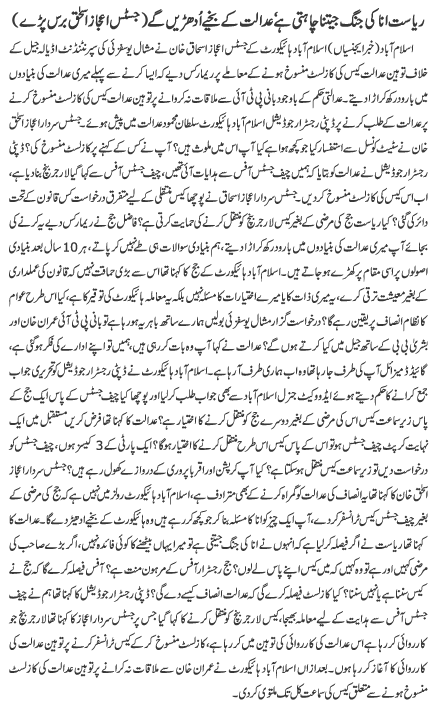 ریاست انا کی جنگ جیتنا چاہتی ہے‘ عدالت کے بخیے اُدھڑیں گے (جسٹس اعجاز اسحٰق برس پڑے)
اسلام آباد (خبر ایجنسیاں) اسلام آباد ہائیکورٹ کے جسٹس اعجاز اسحاق خان نے مشال یوسفزئی کی سپرنٹنڈنٹ اڈیالہ جیل کے
خلاف توہین عدالت کیس کی کازلسٹ منسوخ ہونے کے معاملے پر ریمارکس دیے کہ ایسا کرنے سے پہلے میری عدالت کی بنیادوں
میں بارود رکھ کر اڑا دیتے۔ عدالتی حکم کے باوجود بانی پی ٹی آئی سے ملاقات نہ کروانے پر توہین عدالت کیس کی کازلسٹ منسوخ کرنے
پر عدالت کے طلب کرنے پر ڈپٹی رجسٹرار جوڈیشل اسلام آباد ہائیکورٹ سلطان محمود عدالت میں پیش ہوئے۔ جسٹس سردار اعجاز اسحٰق
خان نے سٹیٹ کونسل سے استفسار کیا جو کچھ ہوا ہے کیا آپ اس میں ملوث ہیں؟ آپ نے کس کے کہنے پر کازلسٹ منسوخ کی؟ ڈپٹی
رجسٹرار جوڈیشل نے عدالت کو بتایا کہ ہمیں چیف جسٹس آفس سے ہدایت آئی تھیں، چیف جسٹس آفس نے کہا ہے لارجر بینچ بنا دیا ہے،
اب اس کیس کی کازلسٹ منسوخ کردیں۔ جسٹس سردار اعجاز اسحاق نے پوچھا کیس منتقلی کے لیے متفرق درخواست کس قانون کے تحت
دائر کی گئی؟ کیا ریاست جج کی مرضی کے بغیر کیس لارجر بینچ کو منتقل کرنے کی حمایت کرتی ہے؟ فاضل جج نے ریمارکس دیے یہ کرنے کی
بجائے آپ میری عدالت کی بنیادوں میں بارود رکھ کر اڑا دیتے، ہم بنیادی سوالات ہی طے نہیں کر پاتے، ہر 10 سال بعد بنیادی
اصولوں پر اسی مقام پر کھڑے ہو جاتے ہیں۔ اسلام آباد ہائیکورٹ کے جج کا کہنا تھا اس سے بڑی حماقت نہیں کہ قانون کی عملداری
کے بغیر معیشت ترقی کرے، یہ میری ذات کا یا میرے اختیارات کا مسئلہ نہیں بلکہ یہ معاملہ ہائیکورٹ کی توقیر کا ہے، کیا اس طرح عوام
کا نظام انصاف پر یقین رہے گا؟ درخواست گزار مشال یوسفزئی بولیں ہمارے ساتھ باہر یہ ہورہا ہے تو بانی پی ٹی آئی عمران خان اور
بشریٰ بی بی کے ساتھ جیل میں کیا کرتے ہوں گے؟ عدالت نے کہا آپ وہ بات کررہی ہیں، ہمیں تو اپنے ادارے کی فکر ہوگئی ہے،
گائیڈڈ میزائل آپ کی طرف جارہا تھا وہ اب ہماری طرف آگیا ہے۔ اسلام آباد ہائیکورٹ نے ڈپٹی رجسٹرار جوڈیشل کو تحریری جواب
جمع کرانے کا حکم دیتے ہوئے ایڈووکیٹ جنرل اسلام آباد سے بھی جواب طلب کرلیا اور پوچھا کیا چیف جسٹس کے پاس ایک جج کے
پاس زیر سماعت کیس اس کی مرضی کے بغیر دوسرے جج کو منتقل کرنے کا اختیار ہے؟ عدالت کا کہنا تھا فرض کریں مستقبل میں ایک
نہایت کرپٹ چیف جسٹس ہو تو اس کے پاس کیس اس طرح منتقل کرنے کا اختیار ہوگا؟ ایک پارٹی کے 3 کیسز ہوں، چیف جسٹس کو
درخواست دیں تو زیر سماعت کیس منتقل ہوسکتا ہے؟ کیا آپ کرپشن اور اقربا پروری کے دروازے کھول رہے ہیں؟ جسٹس سردار اعجاز
اسحٰق خان نے کہا یہ انصاف کی عدالت کو گمراہ کرنے کے بھی مترادف ہے، اسلام آباد ہائیکورٹ رولز میں نہیں ہے کہ جج کی مرضی کے
بغیر چیف جسٹس کیس ٹرانسفر کردیں، آپ ایک چیز کو انا کا مسئلہ بنا کر جو کچھ کررہے ہیں وہ ہائیکورٹ کے بخیے ادھیڑ دے گا۔ عدالت کا
کہنا تھا ریاست نے اگر فیصلہ کرلیا ہے کہ انہوں نے انا کی جنگ جیتنی ہے تو میرا یہاں بیٹھنے کا کوئی فائدہ نہیں، اگر بڑے صاحب کی
مرضی نہیں ہے تو وہ کہیں گے کہ میں کیس اپنے پاس لے لوں؟ جج رجسٹرار آفس کے مرہون منت ہے؟ آفس فیصلہ کرے گا کہ جج نے
کیس سننا ہے یا نہیں سننا؟ کیا کازلسٹ جج کی بجائے کسی اور کی منشاء سے جاری ہوگی؟ ڈپٹی رجسٹرار جوڈیشل کا کہنا تھا ہم نے چیف
جسٹس آفس سے ہدایت کے لیے معاملہ بھیجا، کیس لارجر بینچ کو منتقل کرنے کا کہا گیا جس پر جسٹس سردار اعجاز کا کہنا تھا لارجر بینچ جو
کارروائی کر رہا ہے اس عدالت کی کارروائی کی توہین میں کررہا ہے، کازلسٹ منسوخ کر کے کیس ٹرانسفر کرنے پر توہین عدالت کی
کارروائی کا آغاز کر رہا ہوں)۔ بعدازاں اسلام آباد ہائیکورٹ نے عمران خان سے ملاقات نہ کرانے پر توہین عدالت کی کازلسٹ
منسوخ ہونے سے متعلق کیس کی سماعت کل تک ملتوی کردی۔